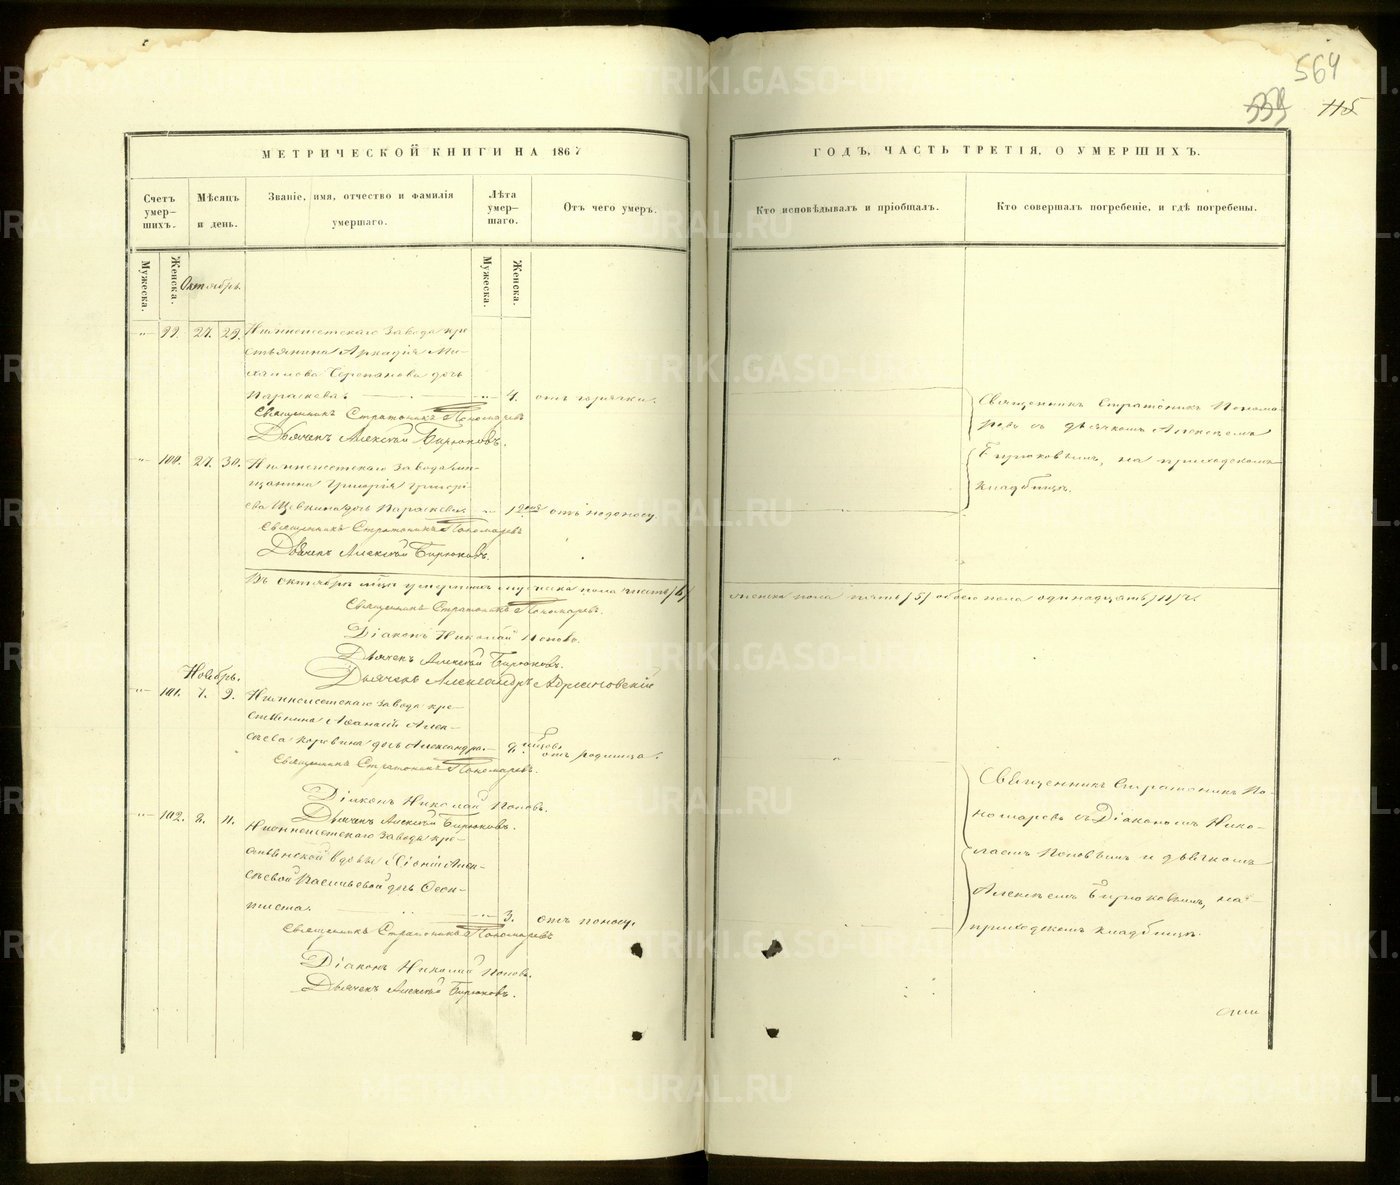 564
339 115
МЕТРИЧЕСКОЙ КНИГИ НА 1867
ГОДЪ, ЧАСТЬ ТРЕТІЯ, О УМЕРШИХЪ.
Счетъ умер-шихъ.
Мѣсяцъ и день.
Званіе, имя, отчество и фамилія умершаго.
Лѣта умер-шаго.
Отъ чего умеръ.
Кто исповѣдывалъ и пріобщалъ.
Кто совершалъ погребеніе, и гдѣ погребены.
Мужеска.
Женска.
Мужеска.
Женска.
Октябрь.
" 99. 27. 29. Нижнеисетскаго завода кре
стьянина Аркадія Ми-
хаилова дочь
Параскева. " 4. отъ горячки.
Священникъ Стратоникъ Пономаревъ
Дьячекъ Алексѣй Бирюковъ.
Священникъ Стратоникъ Понома-
ревъ съ дьячкомъ Алексѣемъ
Бирюковымъ, на приходскомъ
кладбищѣ.
" 100. 27. 30. Нижнеисетскаго завода мѣ-
щанина Григорія Григорь-
ева дочь Параскева. "
Священникъ Стратоникъ Пономаревъ
Дьячекъ Алексѣй Бирюковъ.
Въ октябрѣ мѣсяцѣ умершихъ мужеска пола шесть /6/
женска пола пять /5/ обоего пола одинадцать /11/ ч.
Священникъ Стратоникъ Пономаревъ.
Діаконъ Николай Поповъ.
Дьячекъ Алексѣй Бирюковъ.
Дьячекъ Александръ Адріановскій
Ноябрь.
" 101. 7. 9. Нижнеисетскаго завода кре-
стьянина Аѳанасія Алек-
сѣева дочь Александра. отъ родимца.
Священникъ Стратоникъ Пономаревъ.
Діаконъ Николай Поповъ.
Дьячекъ Алексѣй Бирюковъ.
Священникъ Стратоникъ По-
номаревъ съ Діакономъ Нико-
лаемъ Поповымъ и дьячкомъ
Алексѣемъ Бирюковымъ, на
приходскомъ кладбищѣ.
" 102. 8. 11. Нижнеисетскаго завода кре-
стьянской вдовы Алек-
сѣевой Васильевой дочь Ѳеок-
тиста. " 3. отъ поносу.
Священникъ Стратоникъ Пономаревъ
Діаконъ Николай Поповъ.
Дьячекъ Алексѣй Бирюковъ.
METRIKI.GASO-URAL.RU